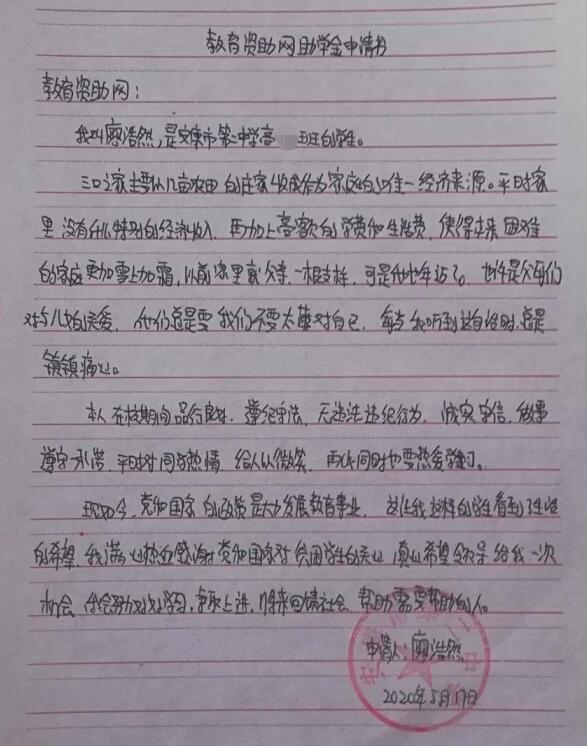 教育资助网助学金申请书
教育资助网：
我叫廖浩然，是文东市第二中学高 班的学生。
三口之家主要以几亩农田的庄家收成作为家庭的唯一经济来源。平日家
里没有什么特别的经济收入，再加上高额的学费和生活费，使得本来困难
的家庭更加雪上加霜，以前家里就父亲一根支柱，可是他也年迈了。也许是父母们
对与儿女的关爱，他们总是要我们不要太薄对自己，每当我听到这句话时，总是
镇镇痛心。
本人在校期间品行良好，遵纪守法，无违法违纪行为，诚实守信，做事
遵守承诺，平时对同学热情，给人以微笑，再此同时也要热爱学习。
现如今，党和国家的政策是大力发展教育事业，这让我这样的学生看到了生活
的希望，我满心热血感谢党和国家对贫困学生的关心，真心希望领导给我一次
机会，我会努力学习，争取上进，将来回馈社会，帮助需要帮助的人。
申请人：廖浩然
2020年5月17日